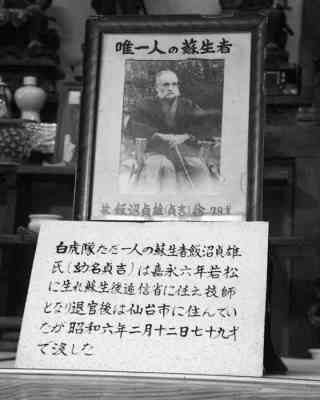 唯一人の蘇生者
飯沼貞雄(貞吉) 79才
白虎隊ただ一人の蘇生者飯沼貞雄
氏(幼名貞吉)は嘉永六年若松
に生れ蘇生後逓信省に仕え技師
となり退官後は仙台市に住んでい
たが昭和六年二月十二日七十九才
で没した